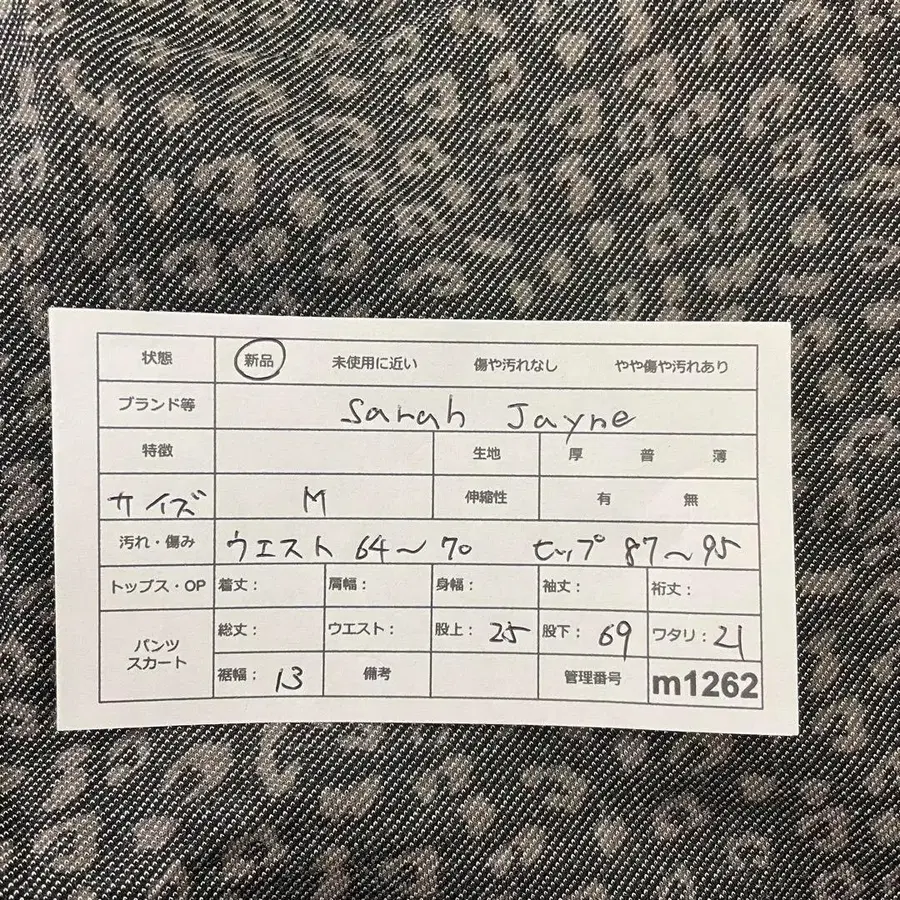 状態 新品 未使用に近い 傷や汚れなし やや傷や汚れあり
ブランド等 Sarah Jayne
特徴 生地 厚 普 薄
サイズ M 伸縮性 有 無
汚れ・傷み ウエスト 64～70 ヒップ 87～95
トップス・OP 着丈： 肩幅： 身幅： 袖丈： 裄丈：
パンツ スカート 総丈： ウエスト： 股上： 25 股下： 69 ワタリ： 21
裾幅： 13 備考 管理番号 m1262